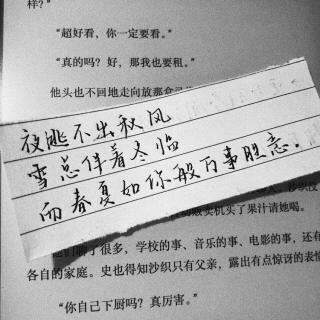 样？”
“超好看，你一定要看。”
“真的吗？好，那我也要租。”
他头也不回地走向放那
夜逃不出秋风
雪总伴着冬临
而春夏如你般万事胜意。
贩卖机买了果汁请她喝。
们聊了很多，学校的事、音乐的事、电影的事，还有
各自的家庭。史也得知沙织只有父亲，露出有点惊讶的表情
“你自己下厨吗？真厉害。”